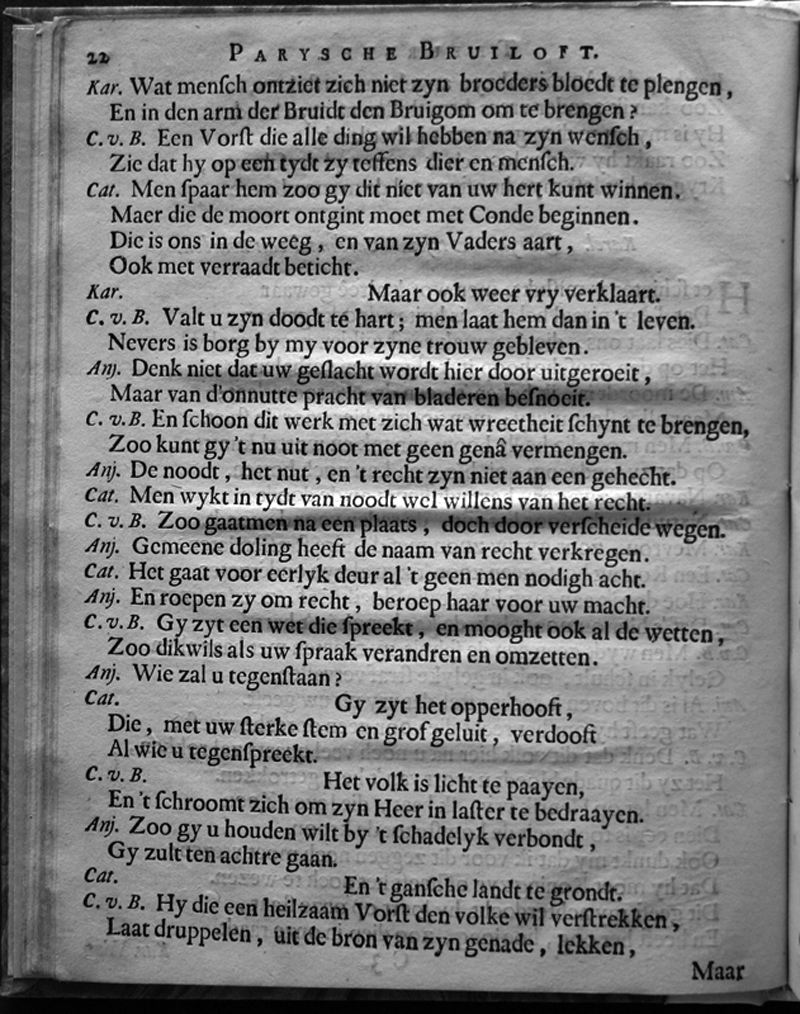 22 PARYSCHE BRUILOFT.
Kar. Wat menſch ontziet zich niet zyn broeders bloedt te plengen,
En in den arm der Bruidt den Bruigom om te brengen?
C. v. B. Een Vorſt die alle ding wil hebben na zyn wenſch,
Zie dat hy op een tydt zy teffens dier en menſch.
Cat. Men ſpaar hem zoo gy dit niet van uw hert kunt winnen.
Maer die de moort ontgint moet met Conde beginnen.
Die is ons in de weeg, en van zyn Vaders aart,
Ook met verraadt beticht.
Kar. Maar ook weer vry verklaart.
C. v. B. Valt u zyn doodt te hart; men laat hem dan in 't leven.
Nevers is borg by my voor zyne trouw gebleven.
Anj. Denk niet dat uw geſlacht wordt hier door uitgeroeit,
Maar van d'onnutte pracht van bladeren beſnoeit.
C. v. B. En ſchoon dit werk met zich wat wreetheit ſchynt te brengen,
Zoo kunt gy 't nu uit noot met geen genâ vermengen.
Anj. De noodt, het nut, en 't recht zyn niet aan een gehecht.
Cat. Men wykt in tydt van noodt wel willens van het recht.
C. v. B. Zoo gaatmen na een plaats, doch door verſcheide wegen.
Anj. Gemeene doling heeft de naam van recht verkregen.
Cat. Het gaat voor eerlyk deur al 't geen men nodigh acht.
Anj. En roepen zy om recht, beroep haar voor uw macht.
C. v. B. Gy zyt een wet die ſpreekt, en mooght ook al de wetten,
Zoo dikwils als uw ſpraak verandren en omzetten.
Anj. Wie zal u tegenſtaan?
Cat. Gy zyt het opperhooft,
Die, met uw ſterke ſtem en grof geluit, verdooft
Al wie u tegenſpreekt.
C. v. B. Het volk is licht te paayen,
En 't ſchroomt zich om zyn Heer in laſter te bedraayen.
Anj. Zoo gy u houden wilt by 't ſchadelyk verbondt,
Gy zult ten achtre gaan.
Cat. En 't ganſche landt te grondt.
C. v. B. Hy die een heilzaam Vorſt den volke wil verſtrekken,
Laat druppelen, uit de bron van zyn genade, lekken,
Maar